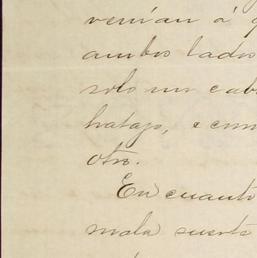 venían á
ambos lados
solo un cab
hatajo, e com
otro.
En cuanto
mala suerte